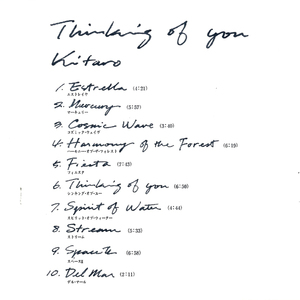 Thinking of you
Kitaro
1. Estrella (4:21)
エストレイヤ
2. Mercury (5:37)
マーキュリー
3. Cosmic Wave (3:40)
コズミック・ウェイヴ
4. Harmony of the Forest (6:19)
ハーモニー・オブ・ザ・フォレスト
5. Fiesta (2:43)
フィエスタ
6. Thinking of you (6:50)
シンキング・オブ・ユー
7. Spirit of Water (4:44)
スピリット・オブ・ウォーター
8. Stream (5:33)
ストリーム
9. Space II (6:38)
スペースII
10. Del Mar (2:11)
デル・マール